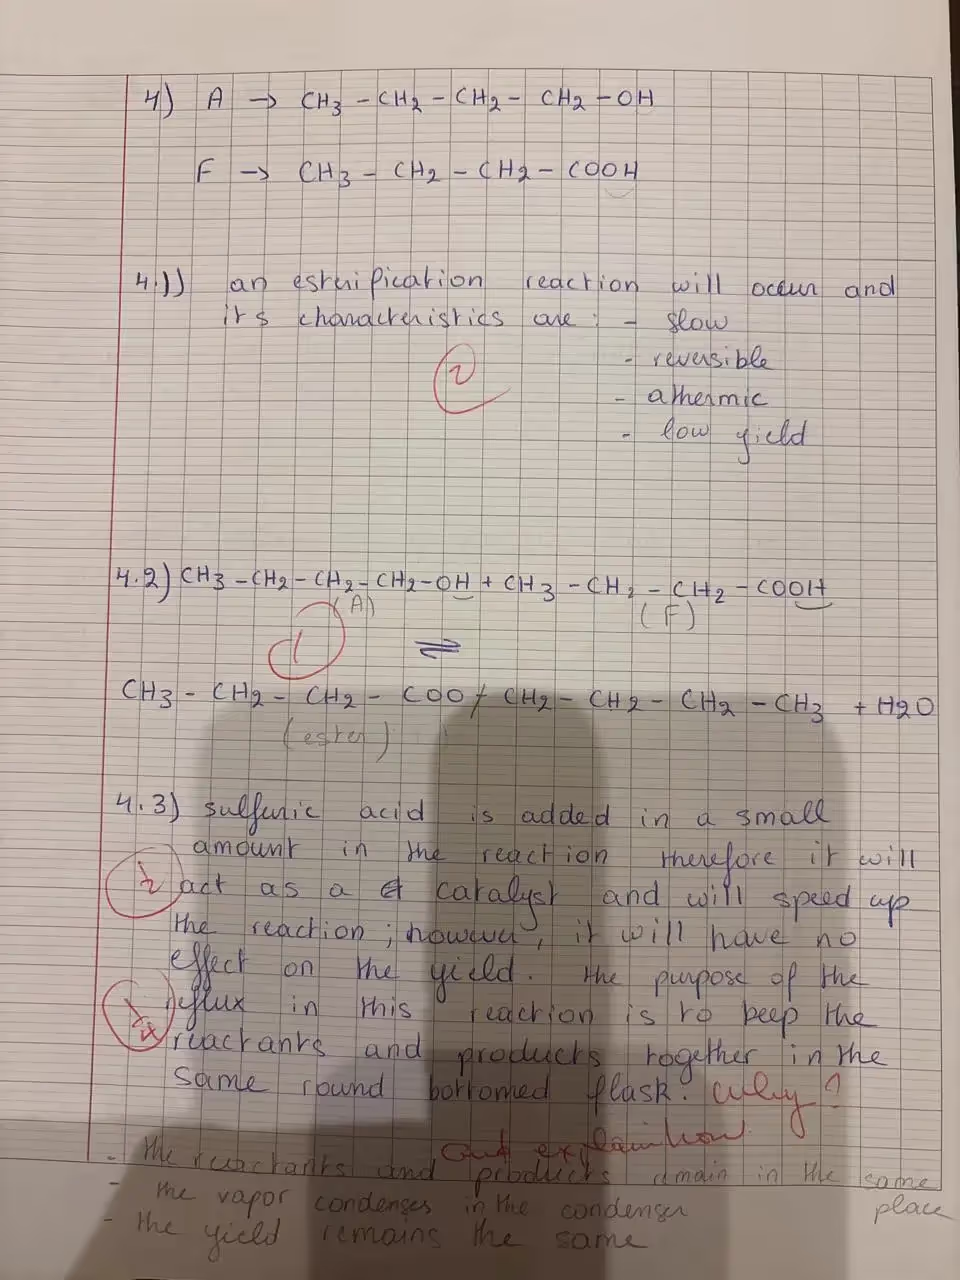 4) A → CH3 - CH2 - CH2 - CH2 - OH
F → CH3 - CH2 - CH2 - COOH
4.1) an esterification reaction will occur and
its characteristics are: - slow
- reversible
2
- athermic
- low yield
4.2) CH3 - CH2 - CH2 - CH2 - OH + CH3 - CH2 - CH2 - COOH
(A) (F)
1 ⇌
CH3 - CH2 - CH2 - COO - CH2 - CH2 - CH2 - CH3 + H2O
(ester)
4.3) sulfuric acid is added in a small
amount in the reaction therefore it will
1/2 act as a catalyst and will speed up
the reaction; however, it will have no
effect on the yield. the purpose of the
reflux in this reaction is to keep the
reactants and products together in the
same round bottomed flask. why?
and explain how
- the reactants and products remain in the same
place
- the vapor condenses in the condenser
- the yield remains the same